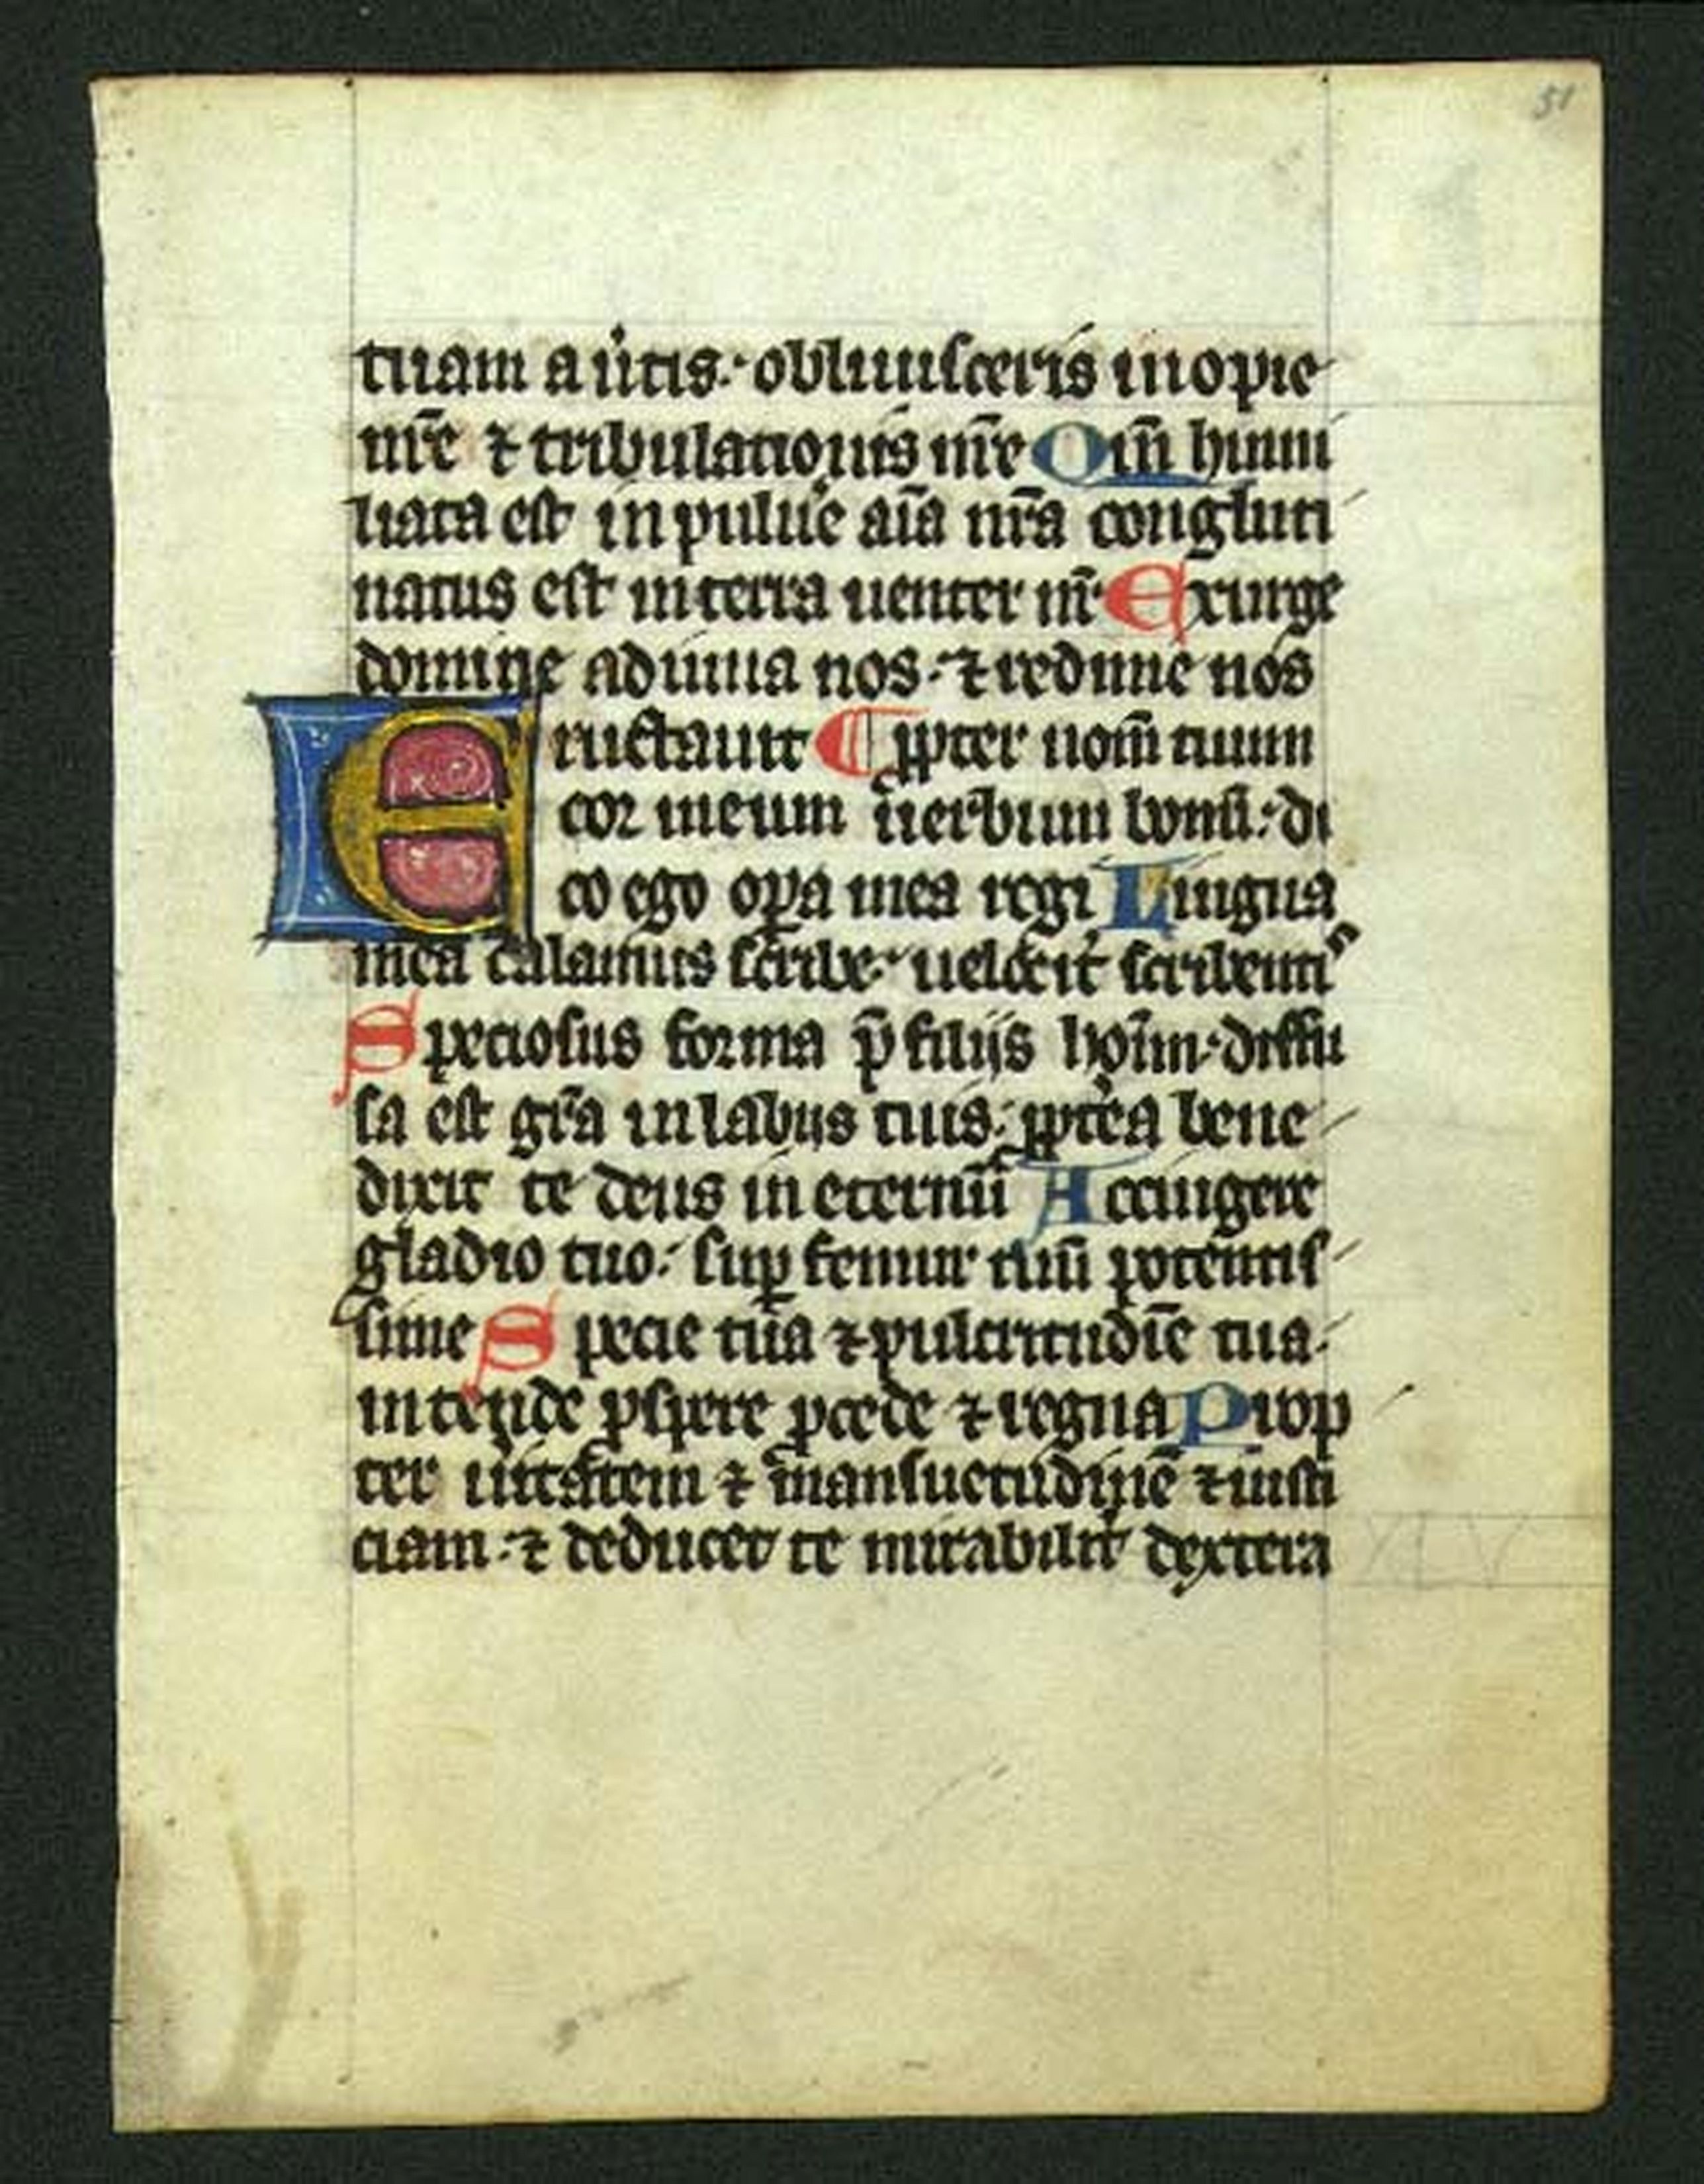 51
tuam au̾tis: obliuisceris inopie
nr̄e ⁊ tribulationis nr̄e Qm̄ humi
liata est in puluer̄e aīa nr̄a congluti
natus est in terra uenter nr̄ Exurge
domine adiuua nos: ⁊ redime nos
Eructauit ¶ ꝓpter nom̄ tuum
cor meum uerbum bonū: di
co ego oꝑa mea regi Lingua
mea calamus scribe: uelocit̾ scribentis
Speciosus forma p̄ filijs hoīm: diffu
sa est gr̄a in labijs tuis: ꝓpt̾ea bene
dixit te deus in eternū Accingere
gladio tuo: suꝑ femur tuū potentis
sime Specie tua ⁊ pulcritudīe tua:
intende ꝓspere ꝓcede ⁊ regna Prop
ter u̾itatem ⁊ mansuetudinē ⁊ iusti
ciam: ⁊ deducet te mirabilit̾ dextera
XLV